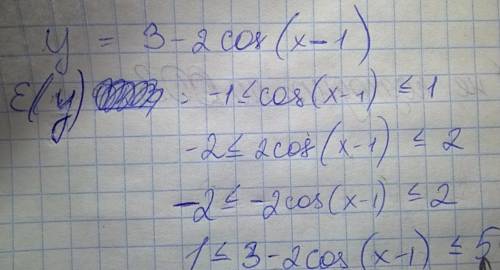 y = 3 - 2 cos(x - 1)
E(y) = -1 ≤ cos(x-1) ≤ 1
-2 ≤ 2cos(x-1) ≤ 2
-2 ≤ -2cos(x-1) ≤ 2
1 ≤ 3-2cos(x-1) ≤ 5